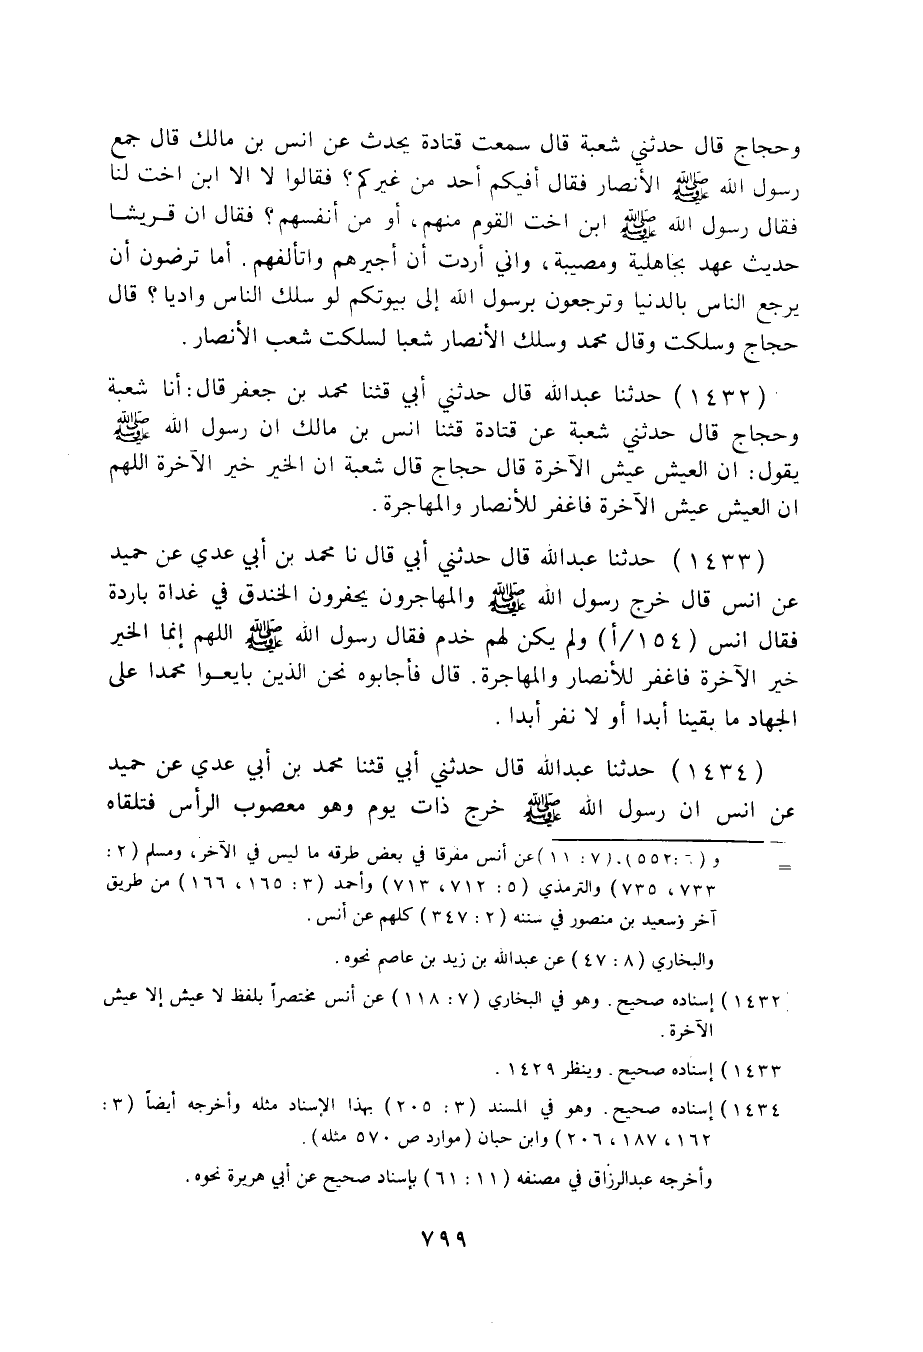 وحجاج قال حدثني شعبة قال سمعت قتادة يحدث عن انس بن مالك قال جمع
رسول الله ﷺ الأنصار فقال أفيكم أحد من غيركم؟ فقالوا لا الا ابن اخت لنا
فقال رسول الله ﷺ ابن اخت القوم منهم، أو من أنفسهم؟ فقال ان قريشا
حديث عهد بجاهلية ومصيبة، واني أردت أن أجيرهم واتألفهم. أما ترضون أن
يرجع الناس بالدنيا وترجعون برسول الله إلى بيوتكم لو سلك الناس واديا؟ قال
حجاج وسلكت وقال محمد وسلك الأنصار شعبا لسلكت شعب الأنصار.
(١٤٣٢) حدثنا عبدالله قال حدثني أبي قثنا محمد بن جعفر قال: أنا شعبة
وحجاج قال حدثني شعبة عن قتادة قثنا انس بن مالك ان رسول الله ﷺ
يقول: ان العيش عيش الآخرة قال حجاج قال شعبة ان الخير خير الآخرة اللهم
ان العيش عيش الآخرة فاغفر للأنصار والمهاجرة.
(١٤٣٣) حدثنا عبدالله قال حدثني أبي قال نا محمد بن أبي عدي عن حميد
عن انس قال خرج رسول الله ﷺ والمهاجرون يحفرون الخندق في غداة باردة
فقال انس (١٥٤/أ) ولم يكن لهم خدم فقال رسول الله ﷺ اللهم إنما الخير
خير الآخرة فاغفر للأنصار والمهاجرة. قال فأجابوه نحن الذين بايعوا محمدا على
الجهاد ما بقينا أبدا أو لا نفر أبدا.
(١٤٣٤) حدثنا عبدالله قال حدثني أبي قثنا محمد بن أبي عدي عن حميد
عن انس ان رسول الله ﷺ خرج ذات يوم وهو معصوب الرأس فتلقاه
= و (٦: ٥٥٢)، (٧: ١١) عن أنس مفرقا في بعض طرقه ما ليس في الآخر، ومسلم (٢:
٧٣٣، ٧٣٥) والترمذي (٥: ٧١٢، ٧١٣) وأحمد (٣: ١٦٥، ١٦٦) من طريق
آخر وسعيد بن منصور في سننه (٢: ٣٤٧) كلهم عن أنس.
والبخاري (٨: ٤٧) عن عبدالله بن زيد بن عاصم نحوه.
١٤٣٢) إسناده صحيح. وهو في البخاري (٧: ١١٨) عن أنس مختصراً بلفظ لا عيش إلا عيش
الآخرة.
١٤٣٣) إسناده صحيح. وينظر ١٤٢٩.
١٤٣٤) إسناده صحيح. وهو في المسند (٣: ٢٠٥) بهذا الإسناد مثله وأخرجه أيضاً (٣:
١٦٢، ١٨٧، ٢٠٦) وابن حبان (موارد ص ٥٧٠ مثله).
وأخرجه عبدالرزاق في مصنفه (١١: ٦١) بإسناد صحيح عن أبي هريرة نحوه.
٧٩٩